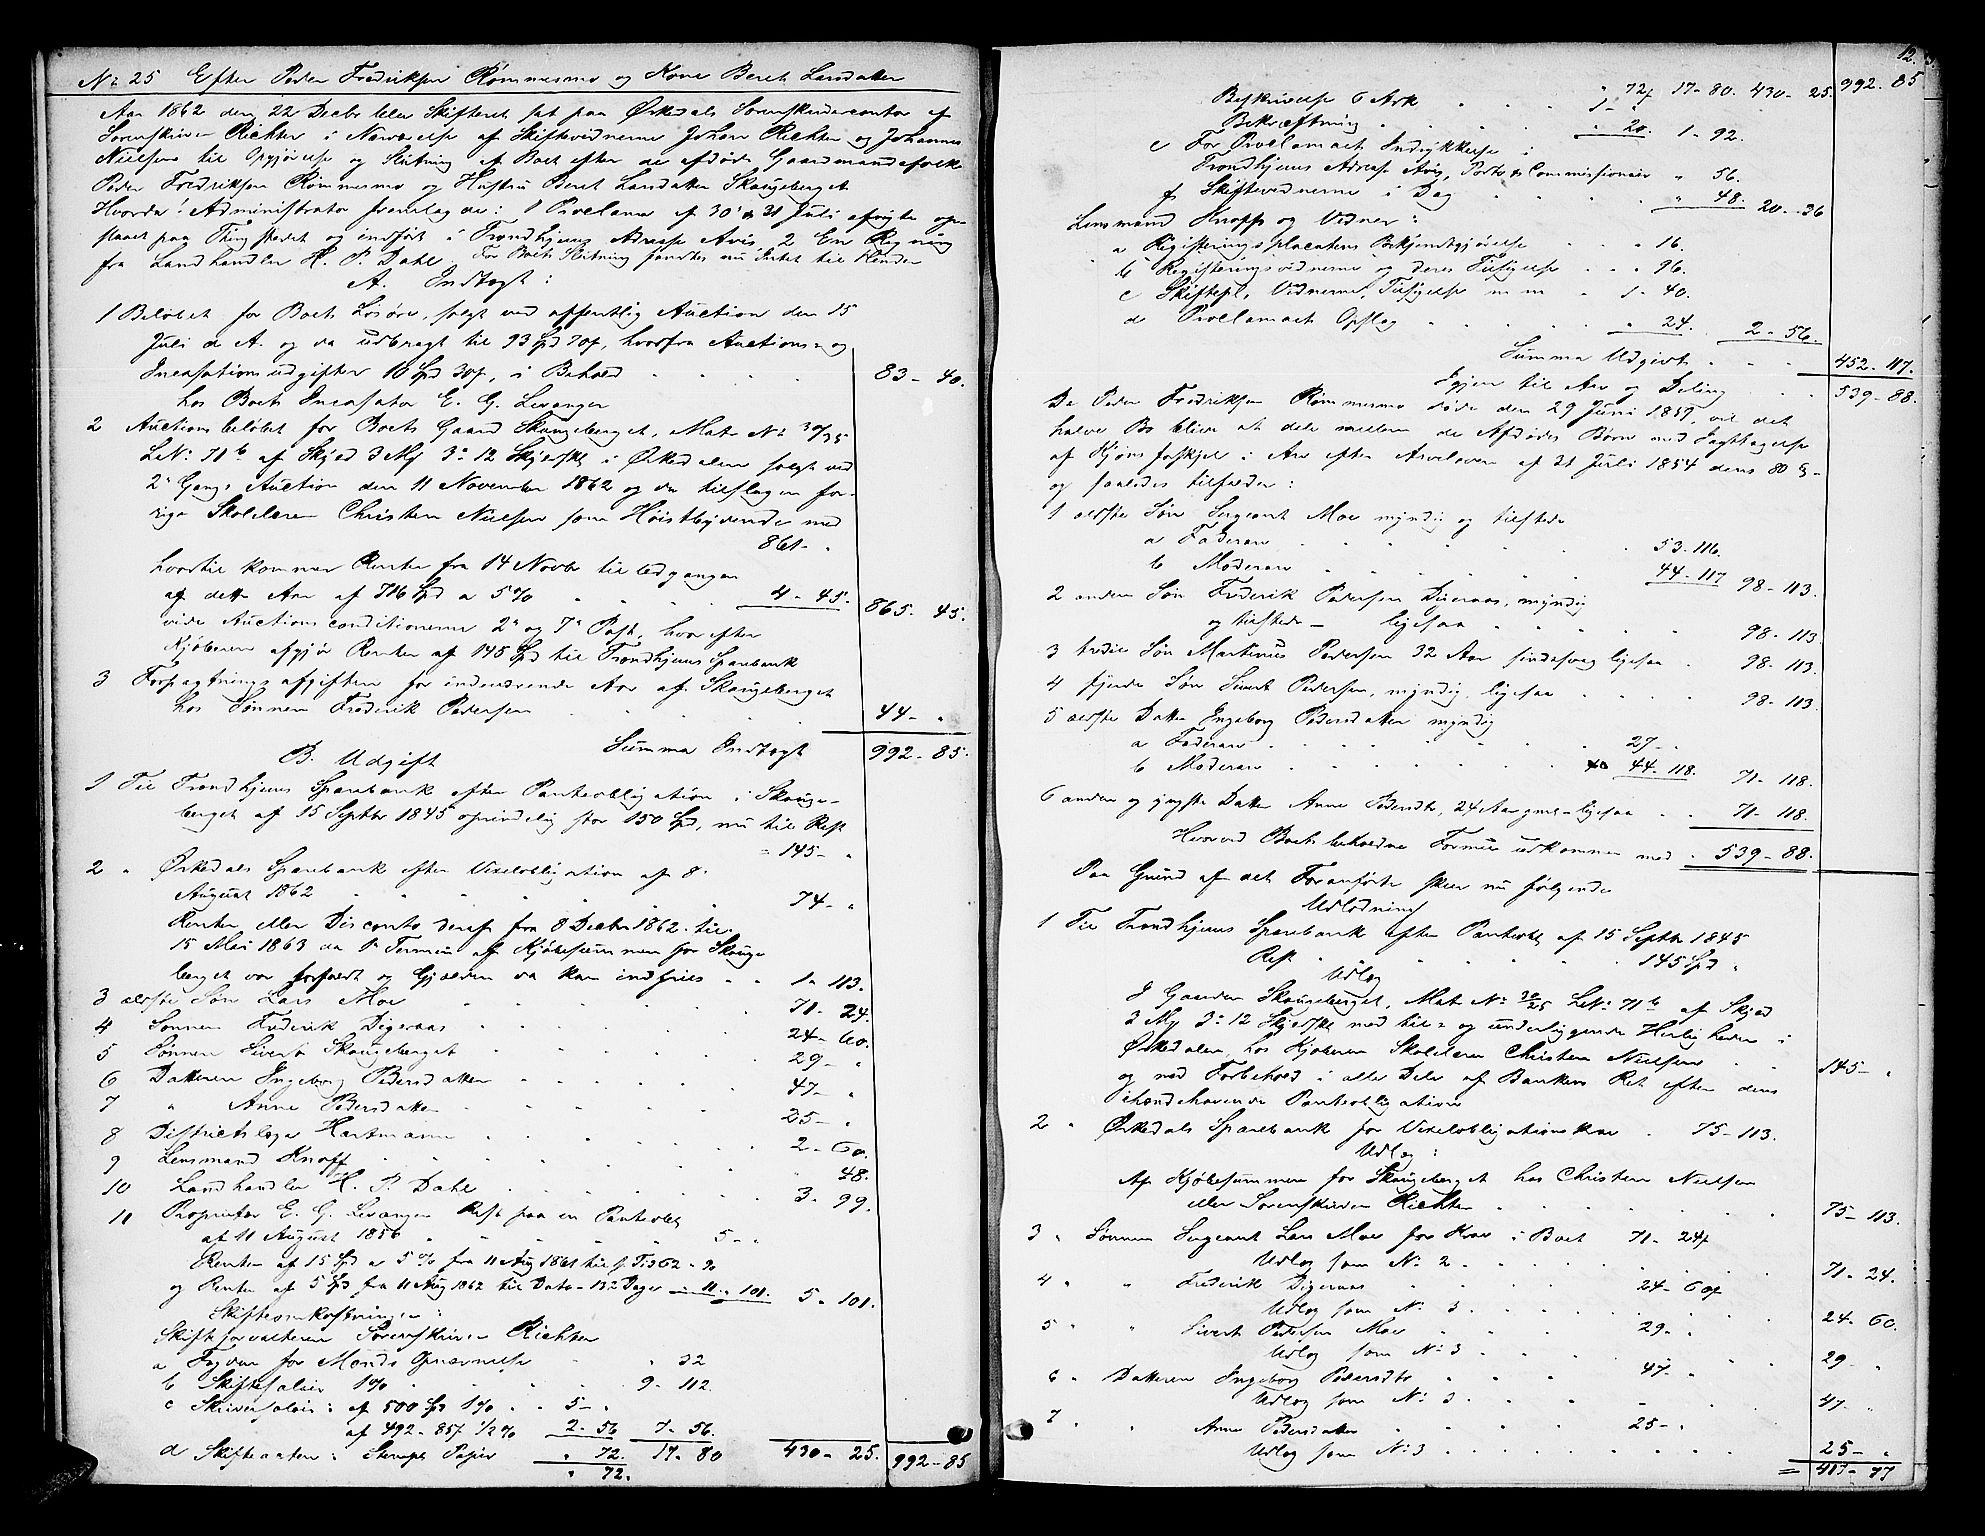 No 25 Efter Peder Fredriksen Rømmesmo og Kone Beret Larsdatter
Aar 1862 den 22 Decbr blev Skifteret sat paa Ørkedals Sorenskrivercontor af
Sorenskriver Richter i Nærværelse af Skiftevidnerne Johan Richter og Johannes
Nielsen til Opgjørelse og Slutning af Boet efter de afdøde Gaardmandsfolk
Peder Fredriksen Rømmesmo og Hustru Beret Larsdatter Skougeberget
Hvorda: Administrator fremlagde: 1 Proclama af 30 & 31 Juli afvigte op-
slaaet paa Thingstedet og indført i Trondhjems Adresse Avis, 2 En Regning
fra Landhandler H. P. Dahl. For Boets Slutning fandtes nu Intet til Hinder
A. Indtægt:
1 Beløbet for Boets Løsøre, solgt ved offentlig Auction den 15
Juli d. A. og da udbragt til 93 Spd 70 ß, hvorfra Auctions- og
Incasationsudgifter 10 Spd 30 ß, i Behold . . . . 83 - 40.
hos Boets Incasator E. G. Levanger
2 Auctionsbeløbet for Boets Gaard Skougeberget, Matr No 30/35
LNo 71b af Skyld 3 My 3 ort 12 Skjerfskl i Ørkedalen solgt ved
2den Gangs Auction den 11 November 1862 og da tilslagen for-
rige Skolelærer Christen Nielsen som Høistbydende med
861 - "
hvortil kommer Renter fra 14 Novbr til Udgangen
af dette Aar af 716 Spd a 5% . . . 4 - 45. 865. 45.
vide Auctionsconditionerne 2den og 7de Post, hvorefter
Kjøberen afgjør Renter af 145 Spd til Trondhjems Sparebank
3 Forpagtningsafgiften for indeværende Aar af Skougeberget
hos Sønnen Frederik Pedersen . . . . 44 - "
Summa Indtægt 992 - 85.
B. Udgift
1 Til Trondhjems Sparebank efter Panteobligation i Skouge-
berget af 15 Septbr 1845 oprindelig stor 150 Spd, nu til Rest
145 - "
2 " Ørkedals Sparebank efter Vexelobligation af 8.
August 1862 " " " " 74 - "
Renter eller Disconto deraf fra 8 Decbr 1862 til
15 Mai 1863 da 1ste Termin af Kjøbesummen for Skouge-
berget var forfaldt og Gjælden da kan indfries . . 1 - 113.
3 ældste Søn Lars Moe . . . . 71 - 24.
4 Sønnen Frederik Digeraas . . . . 24 - 60.
5 Sønnen Sivert Skougeberget . . . . 29 - "
6 Datteren Ingeborg Pedersdatter . . . . 47 - "
7 " Anne Pedersdatter . . . . 25 - "
8 Districtslæge Hartmann . . . . 2 - 60.
9 Lensmand Knoff . . . . " 48.
10 Landhandler H. P. Dahl . . . . 3. 99.
11 Proprietær E. G. Levanger Rest paa en Panteobl
af 11 August 1856 " " 5 - "
Renter af 15 Spd a 5% fra 11 Aug 1861 til 62
og Renter af 5 Spd fra 11 Aug 1862 til Dato - 132 Dage 11. " 101. 5 - 101.
Skifteomkostninger:
Skifteforvalteren Sorenskriver Richter
a Fogden for Mænds Opnævnelse " " 32
b Skiftesalair 1% " " 9 - 112.
c Skriversalair: af 500 Spd 1% " " 5 - "
af 492 - 85 ß 1/2% 2 - 56 7 - 56.
d Skifteacten: Stemplet Papiir " 72. 17 - 80 430 - 25. 992 - 85
" 72.
12.
Beskrivelse 6 Ark . . . " 72 ß 17 - 80. 430 - 25. 992 - 85
1 - "
Bekræftning . . . " 20. 1 - 92.
e For Proclamaets Indrykkelse i
Trondhjems Adresse Avis, Porto & Commissionair " 56.
f Skiftevidnerne i Dag . . . " 48. 20 - 36
Lensmand Knoff og Vidner:
a Registeringsplacatens Bekjendtgjørelse . . " 16.
b Registeringsvidnerne og deres Tilsigelse . . " 96.
c Skiftepl, Vidnerne, Tilsigelse m m . 1 - 40.
d Proclamaets Opslag . . . " 24. 2 - 56.
Summa Udgivt . . . 452 - 117.
Igjen til Arv og Deling . . 539 - 88.
Da Peder Fredriksen Rømmesmo døde den 29 Juni 1859, vil det
halve Bo blive at dele mellem de Afdødes Børn med Iagttagelse
af Kjøns Forskjel i Arv efter Arveloven af 31 Juli 1854 dens 80 §-
og saaledes tilfalder:
1 ældste Søn Sergeant Moe myndig og tilstede
a Faderarv . . . . 53. 116.
b Moderarv . . . . 44 - 117 98 - 113.
2 anden Søn Frederik Pedersen Digeraas, myndig
og tilstede - ligesaa . . . . 98 - 113
3 tredie Søn Martinius Pedersen 32 Aar sindssvag ligesaa . 98 - 113.
4 fjerde Søn Sivert Pedersen, myndig, ligesaa . . . . 98 - 113.
5 ældste Datter Ingeborg Pedersdatter myndig
a Faderarv . . . . 27 - "
b Moderarv . . . . 44 - 118. 71 - 118.
6 anden og yngste Datter Anne Pedersdtr, 24 Aar gml - ligesaa . . 71 - 118.
Hvorved Boets beholdne Formue udkommer med . 539 - 88.
Paa Grund af det Foranførte skeer nu følgende
Udlodning
1 Til Trondhjems Sparebank efter Panteobl af 15 Septbr 1845
Rest . . . . 145 Spd "
Udlæg
I Gaarden Skougeberget, Matr No 30/35 LNo 71b af Skyld
3 My 3 ort 12 Skjerfskl med til- og underliggende Herligheder i
Ørkedalen, hos Kjøberen Skolelærer Christen Nielsen . . 145 - "
og med Forbehold i alle Dele af Bankens Ret efter dens
ihændehavende Panteobligation
2 " Ørkedals Sparebank for Vexelobligationskrav . 75 - 113.
Udlæg:
Af Kjøbesummen for Skougeberget hos Christen Nielsen
eller Sorenskriver Richter . . . . 75 - 113.
3 " Sønnen Sergeant Lars Moe for Krav i Boet 71 - 24 ß
Udlæg som No 2 . . . . 71 - 24.
4 " " Frederik Digeraas . . . 24 - 60 ß
Udlæg som No 3 . . . . 24 - 60.
5 " " Sivert Pedersen Moe . . . 29 - "
Udlæg som No 3 . . . . 29 - "
6 " Datteren Ingeborg Pedersdtr . . . 47 - "
Udlæg som No 3 . . . . 47 - "
7 " " Anne Pedersdatter . . . 25 - "
Udlæg som No 3 . . . . 25 - "
= 417 - 77